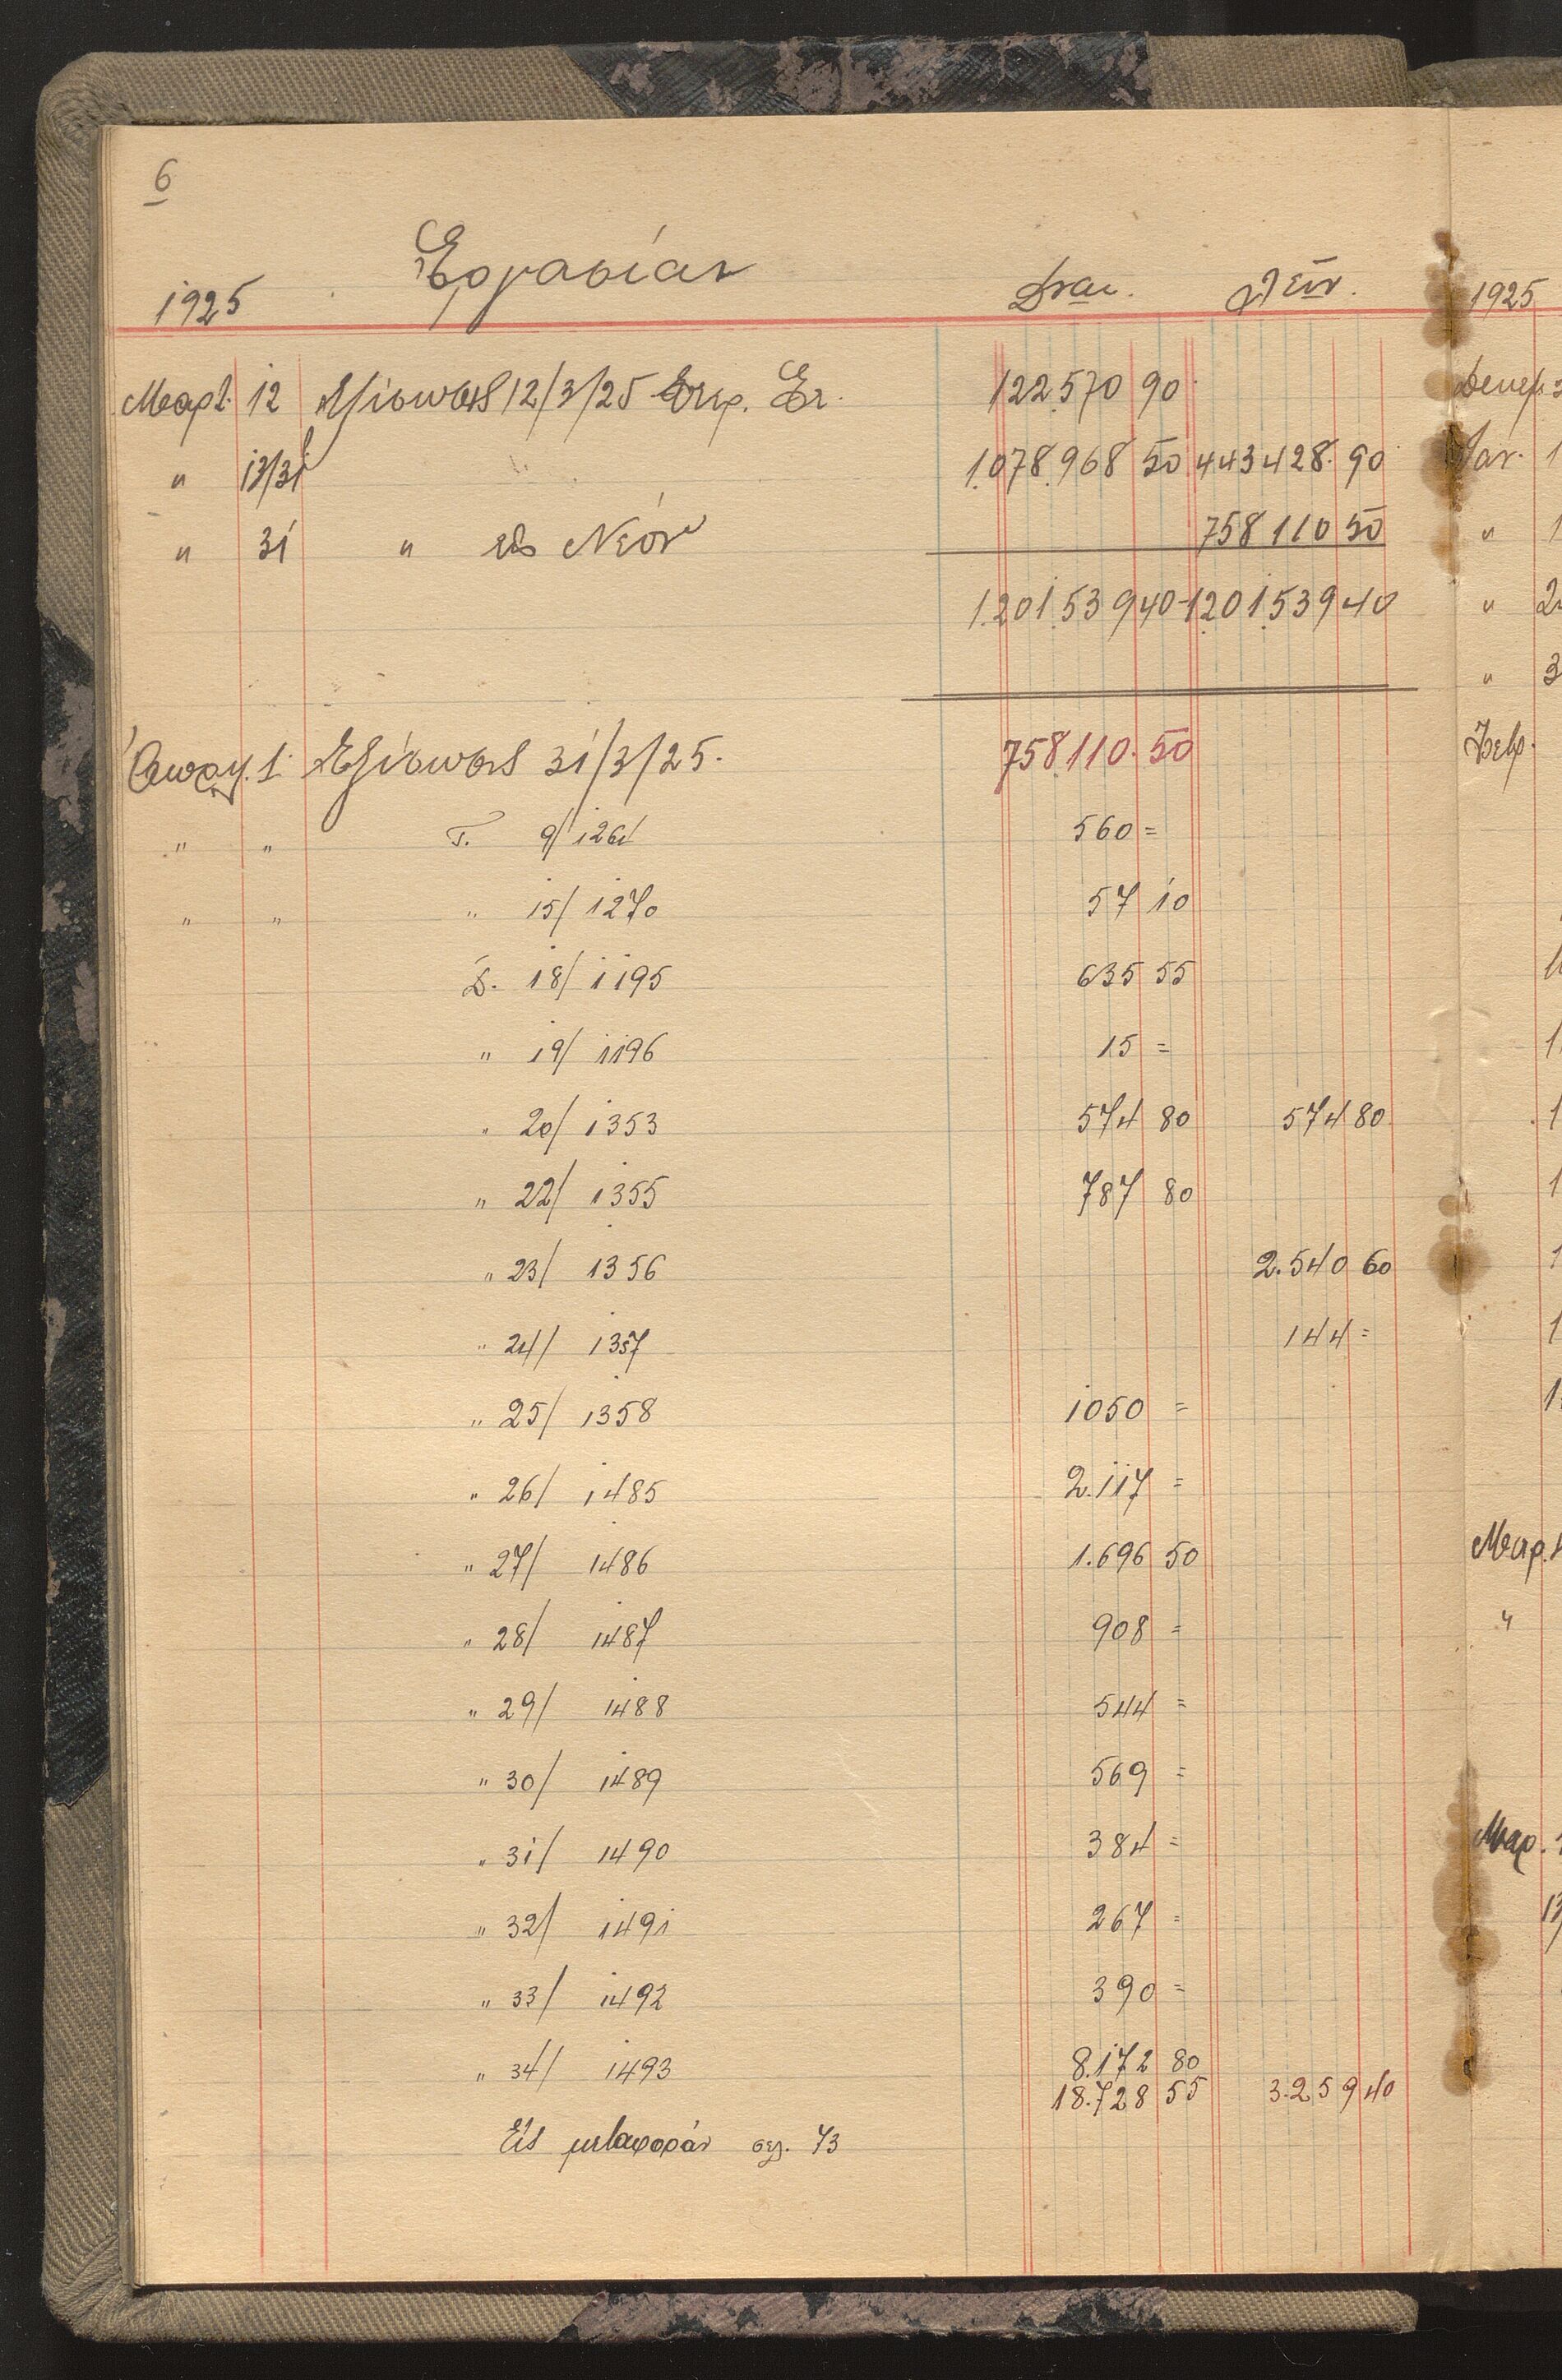 6
1925 Ἐργασίαι
Μαρτ. 12 Ἐξίσωσις 12/3/25 122570 90
" 13/31 1.078.968 50 443428. 90
" 31 " εἰς Νέον 758110 50
1.201.539 40 1.201.539 40
1 Ἐξίσωσις 31/3/25. 758.110. 50
" " Τ. 9/1261 560 =
" " " 15/ 1270 57 10
Δ. 18/ 1195 635 55
" 19/ 1196 15 =
" 20/ 1353 574 80 574 80
" 22/ 1355 787 80
" 23/ 1356 2.540 60
" 24/ 1357 144 =
" 25/ 1358 1050 =
" 26/ 1485 2.117 =
" 27/ 1486 1.696 50
" 28/ 1487 908 =
" 29/ 1488 544 =
" 30/ 1489 569 =
" 31/ 1490 384 =
" 32/ 1491 267 =
" 33/ 1492 390 =
" 34/ 1493 8.172 80
18.728 55 3.259 40
Εἰς μεταφοράν σελ. 73
1925
Ἰαν.
"
"
"
Φεβρ.
Μαρ.
"
Μαρ.